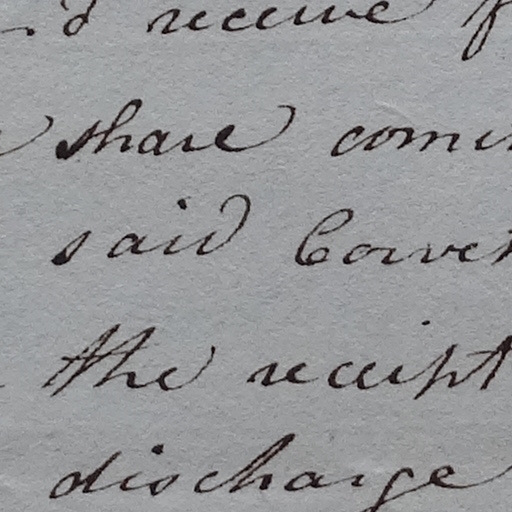 receive
share comin
said
the receipt
discharge